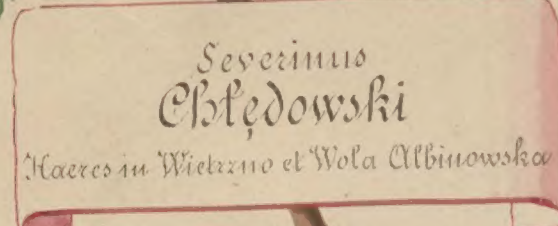 Severinus
Chłędowski
Haeres in Wietrzno et Wola Albinowska